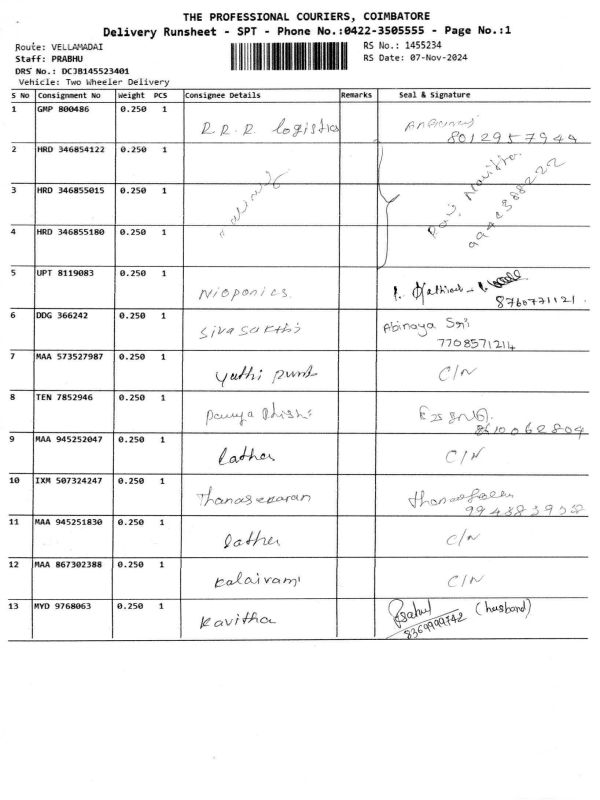 THE PROFESSIONAL COURIERS, COIMBATORE
Delivery Runsheet - SPT - Phone No.:0422-3505555 - Page No.:1
Route: VELLAMADAI RS No.: 1455234
Staff: PRABHU RS Date: 07-Nov-2024
DRS No.: DCJB145523401
Vehicle: Two Wheeler Delivery
S No Consignment No Weight PCS Consignee Details Remarks Seal & Signature
1 GMP 800486 0.250 1 R.R.R. logistics
8012957944
2 HRD 346854122 0.250 1
3 HRD 346855015 0.250 1
4 HRD 346855180 0.250 1
5 UPT 8119083 0.250 1 Nioponics.
8760771121.
6 DDG 366242 0.250 1 Siva Sakthi Abinaya Sri
7708571214
7 MAA 573527987 0.250 1 C/N
8 TEN 7852946 0.250 1
8610062804
9 MAA 945252047 0.250 1 Latha C/N
10 IXM 507324247 0.250 1 Thanasekaran
11 MAA 945251830 0.250 1 C/N
12 MAA 867302388 0.250 1 Kalaivani C/N
13 MYD 9768063 0.250 1 Kavitha (husband)
8369999742